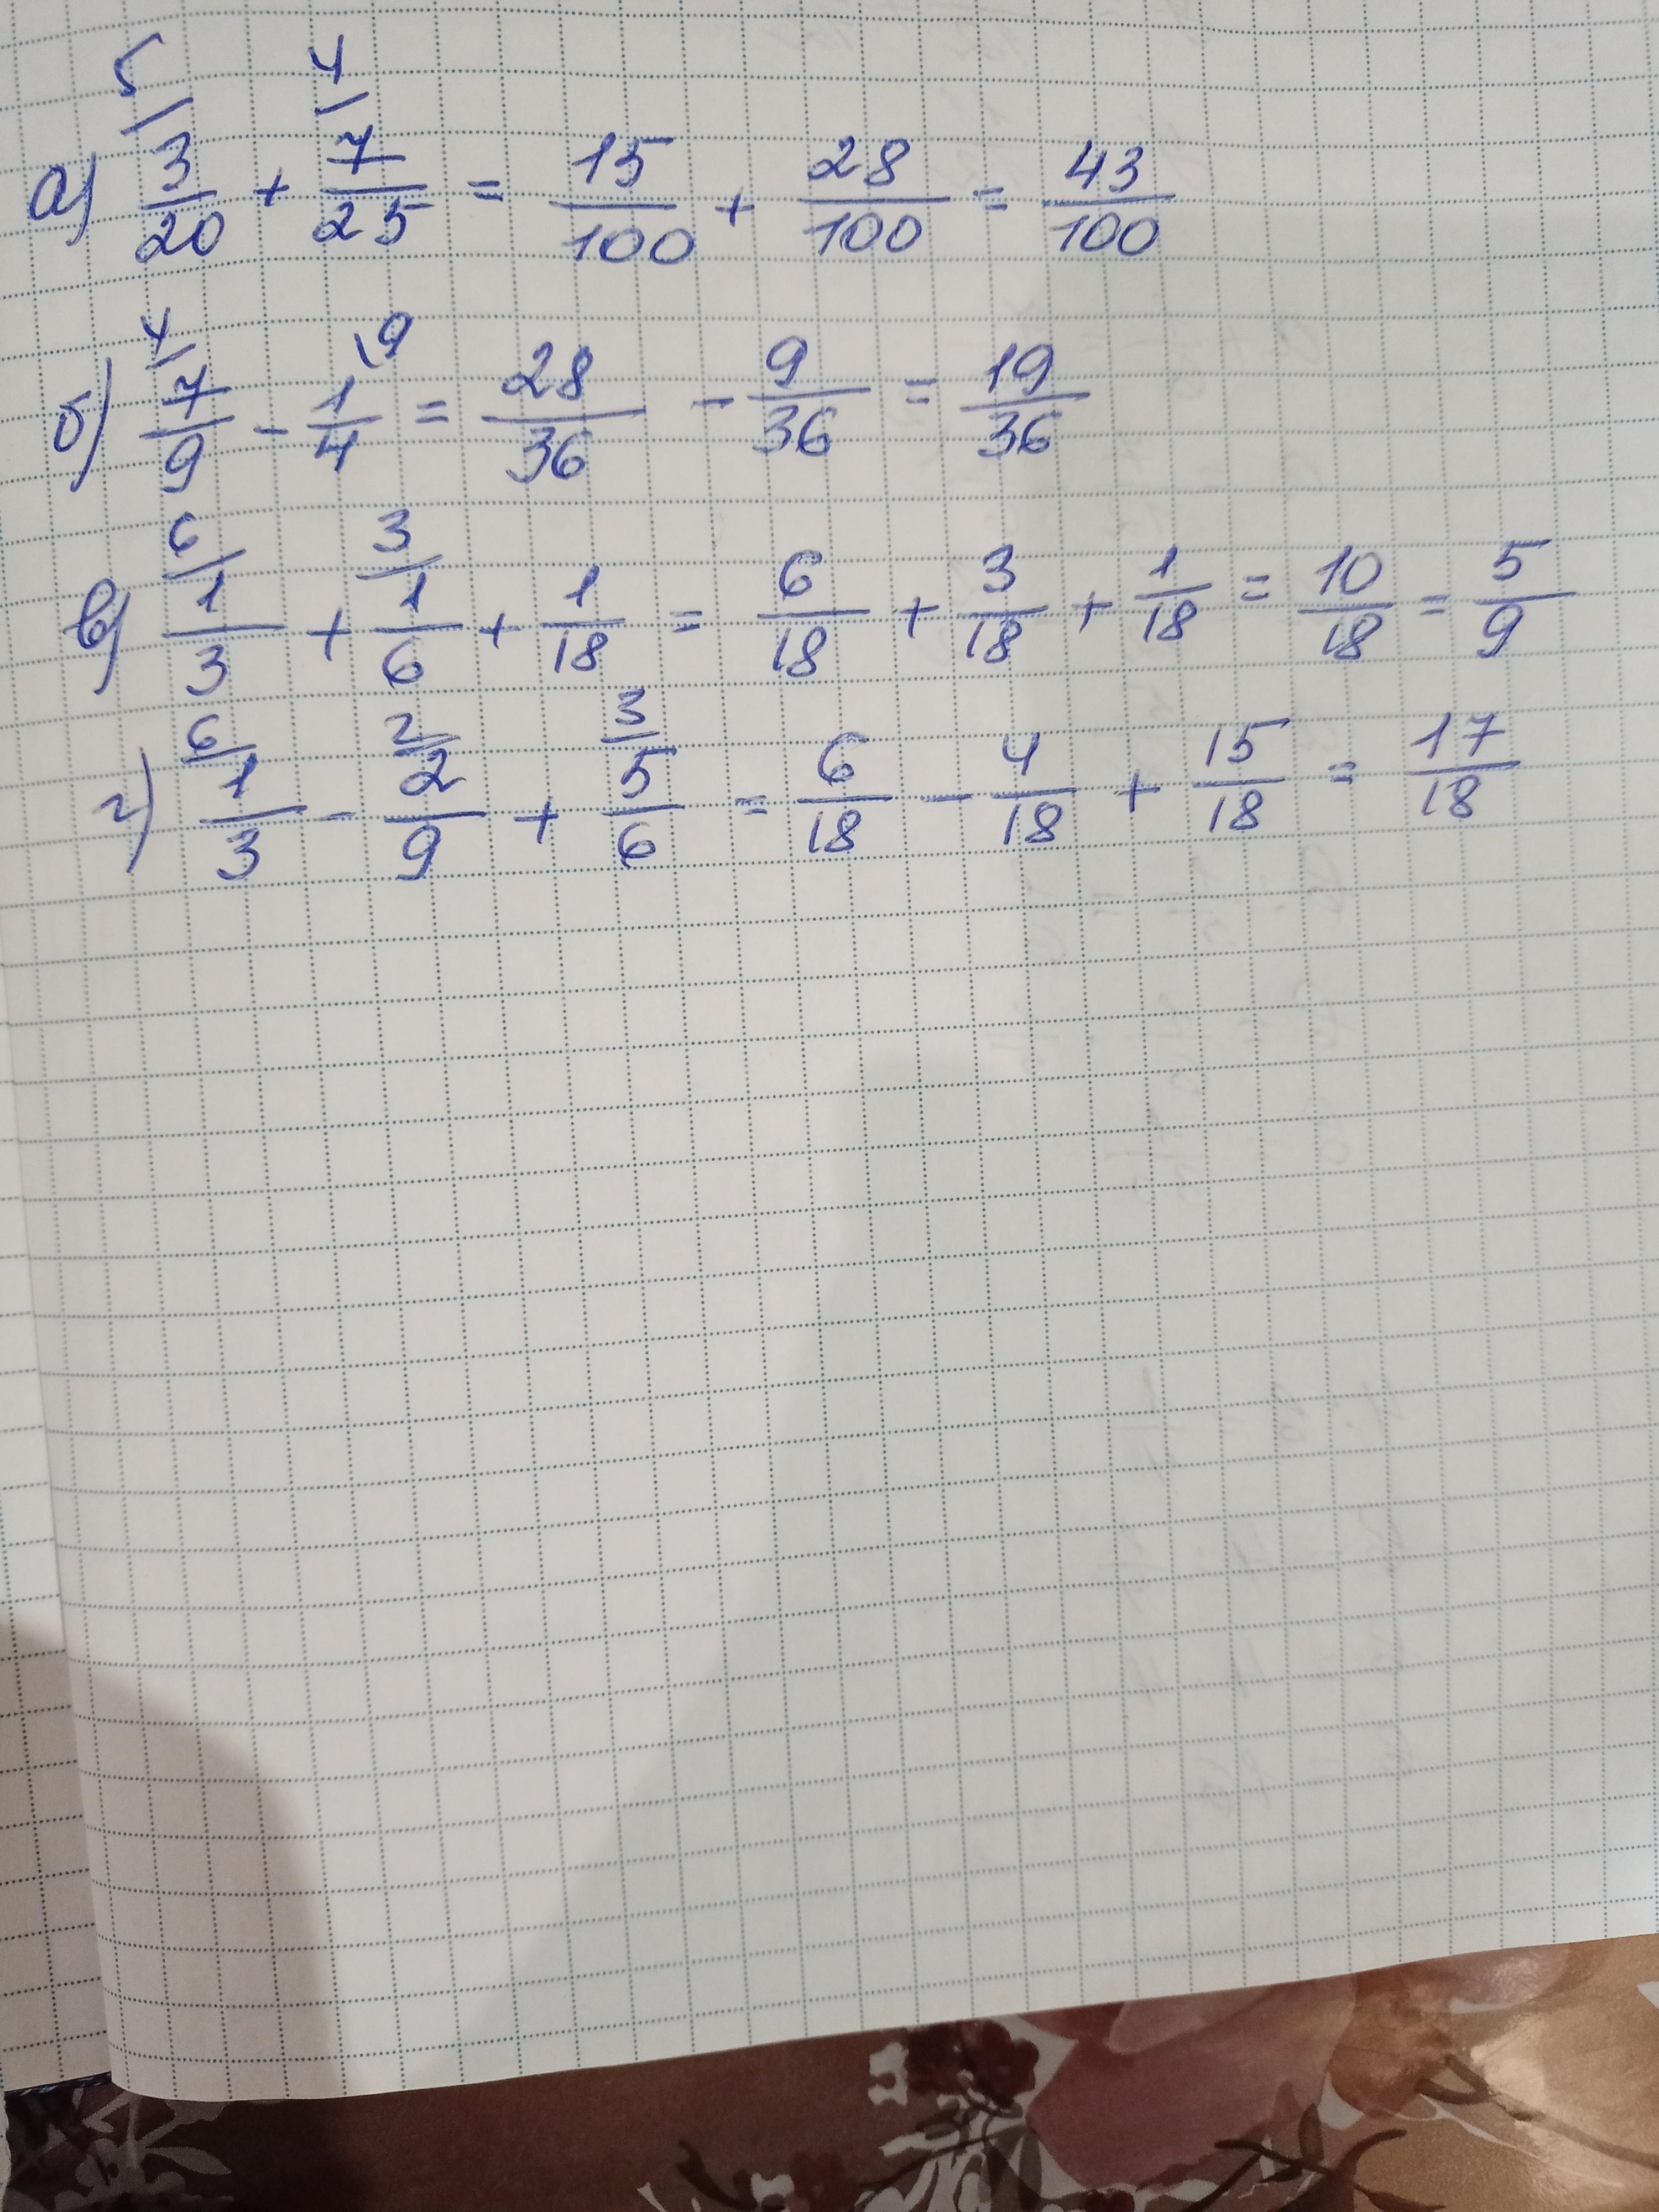 5 4
а) 3/20 + 7/25 = 15/100 + 28/100 = 43/100
4 9
б) 7/9 - 1/4 = 28/36 - 9/36 = 19/36
6 3
в) 1/3 + 1/6 + 1/18 = 6/18 + 3/18 + 1/18 = 10/18 = 5/9
6 2 3
г) 1/3 - 2/9 + 5/6 = 6/18 - 4/18 + 15/18 = 17/18